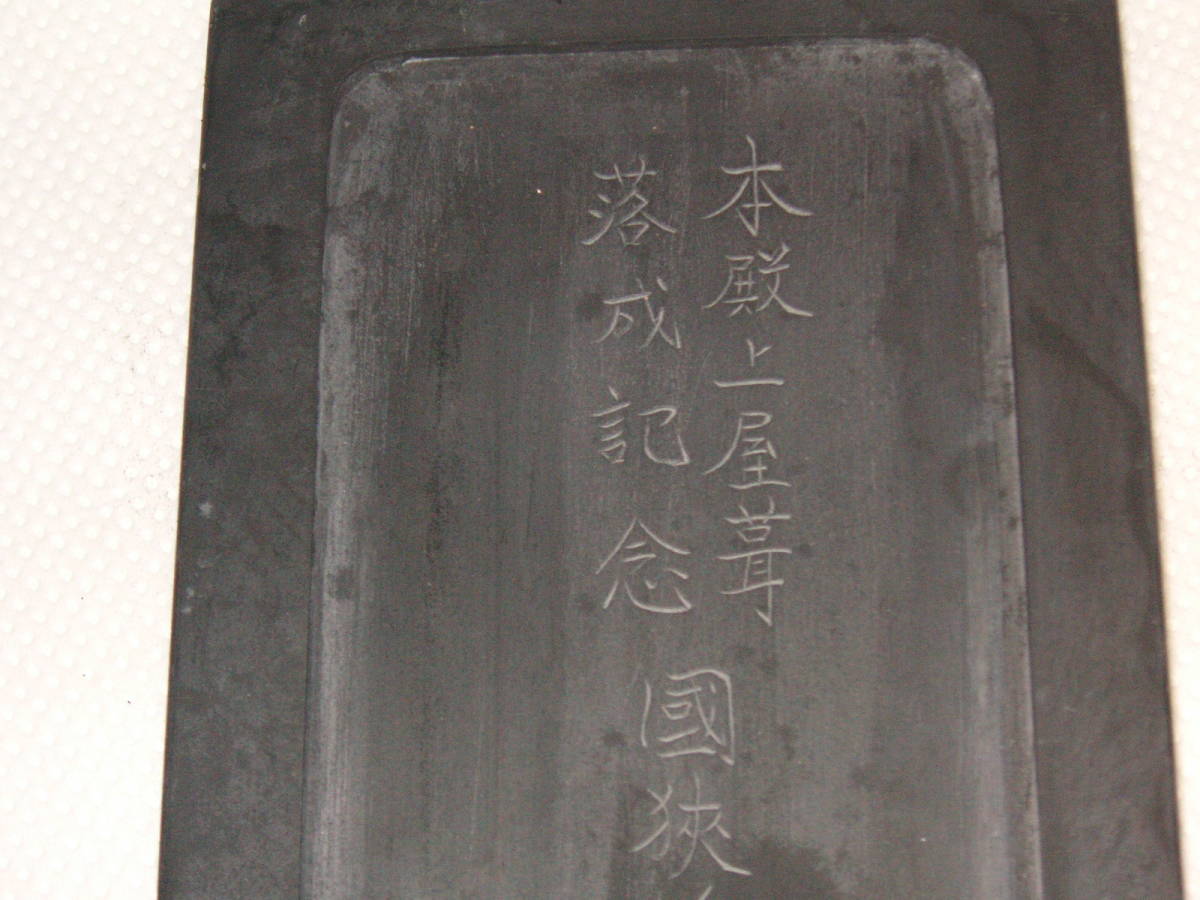 本殿上屋葺
落成記念
國狹